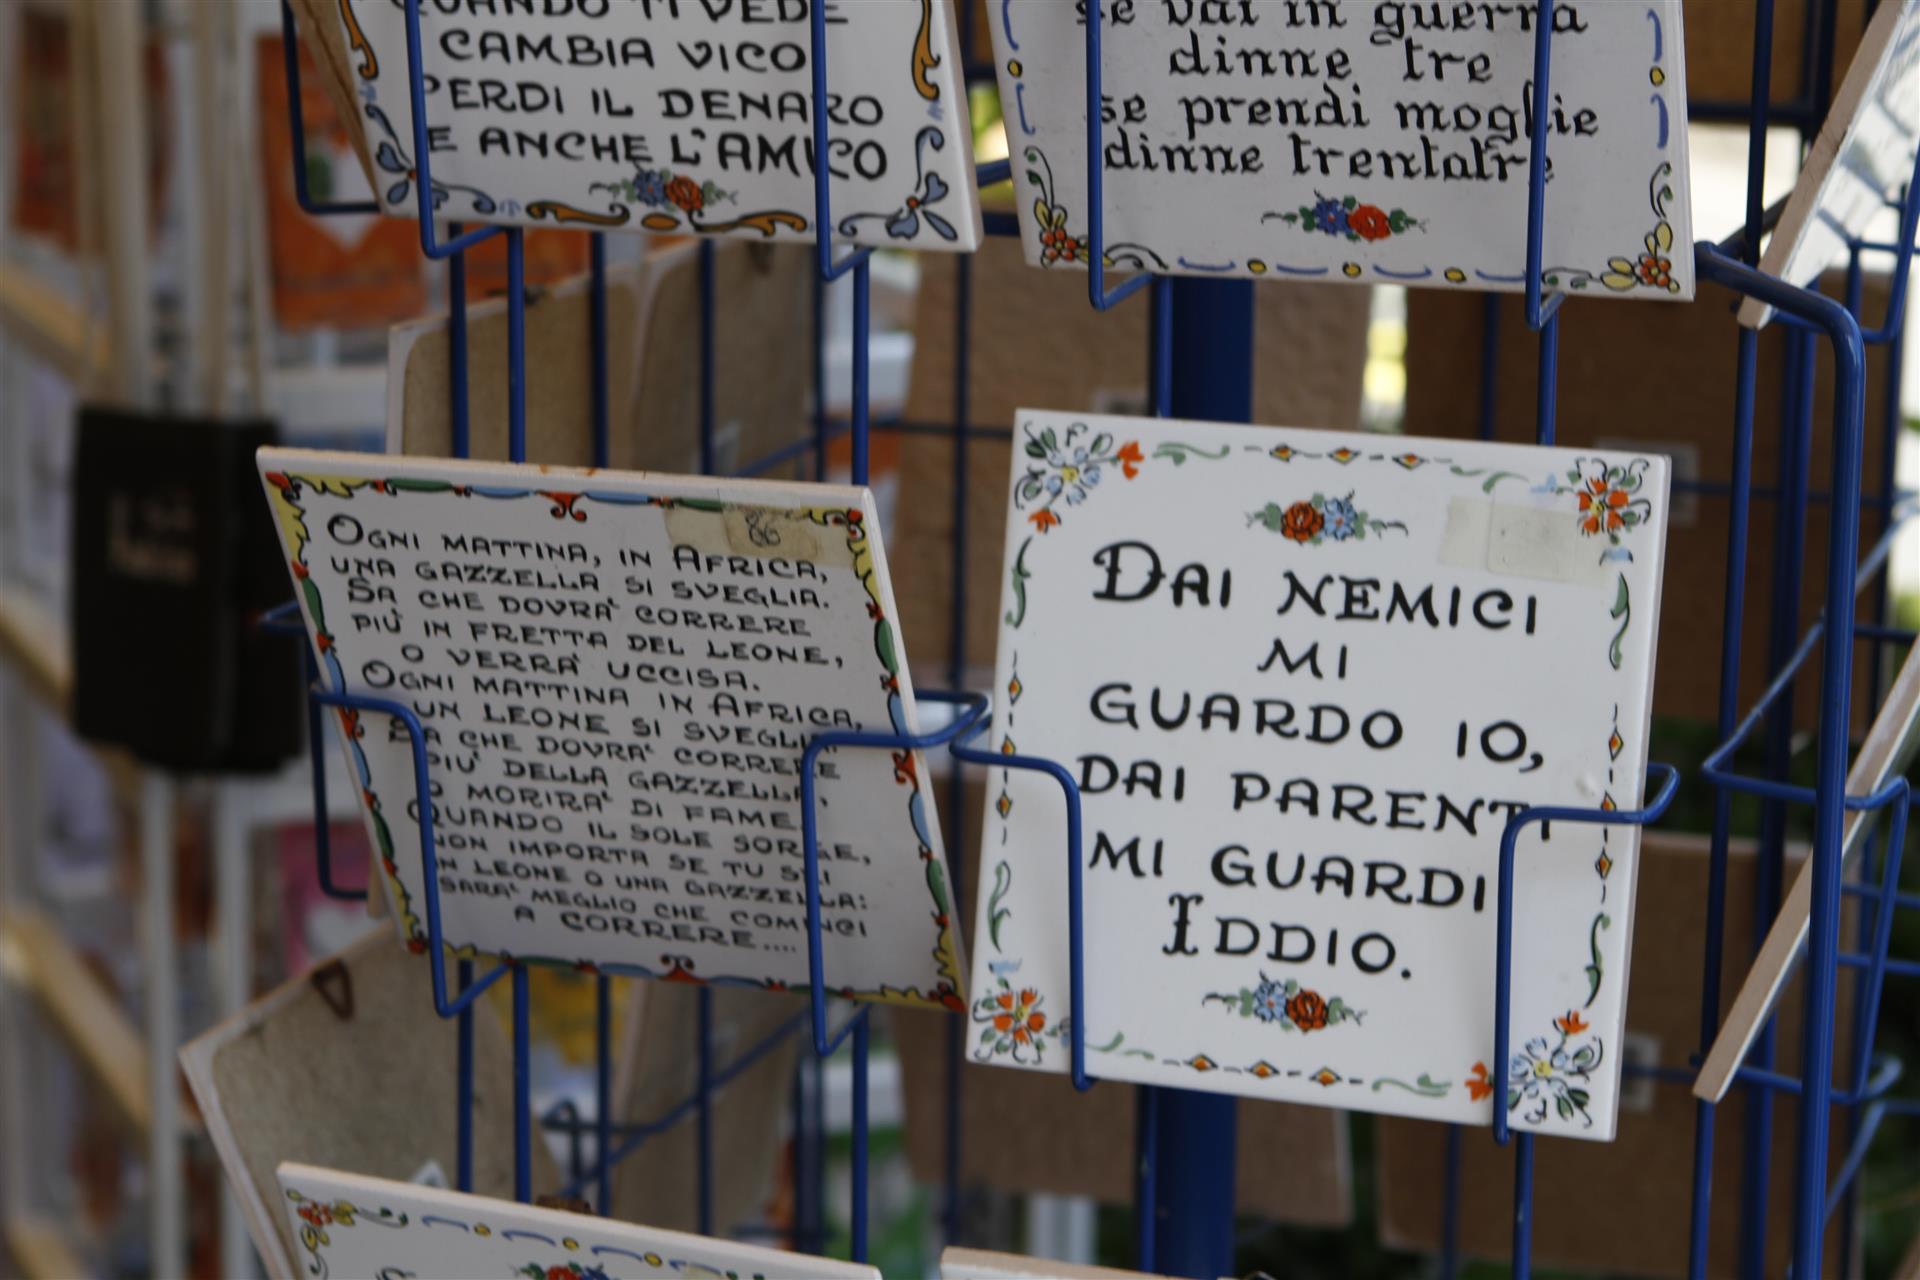 QUANDO TI VEDE
CAMBIA VICO
PERDI IL DENARO
E ANCHE L'AMICO
se vai in guerra
dinne tre
se prendi moglie
dinne trentatre
OGNI MATTINA, IN AFRICA,
UNA GAZZELLA SI SVEGLIA.
SA CHE DOVRA' CORRERE
PIU' IN FRETTA DEL LEONE,
O VERRA' UCCISA.
OGNI MATTINA IN AFRICA,
UN LEONE SI SVEGLIA.
SA CHE DOVRA' CORRERE
PIU' DELLA GAZZELLA,
O MORIRA' DI FAME.
QUANDO IL SOLE SORGE,
NON IMPORTA SE TU SEI
UN LEONE O UNA GAZZELLA:
SARA' MEGLIO CHE COMINCI
A CORRERE....
DAI NEMICI
MI
GUARDO IO,
DAI PARENTI
MI GUARDI
IDDIO.